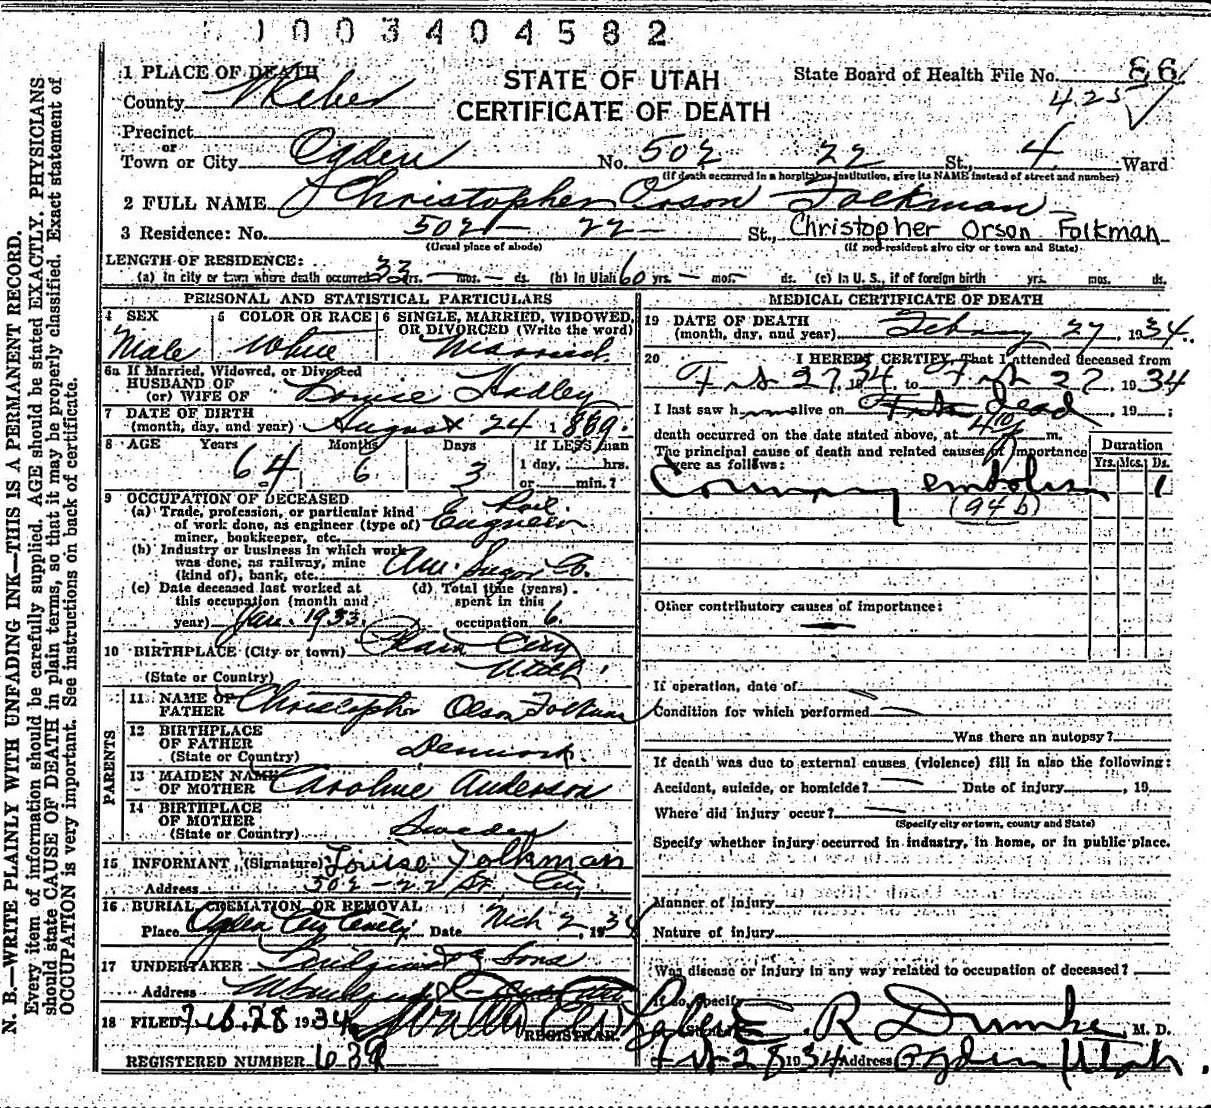 1003404582
1 PLACE OF DEATH
STATE OF UTAH
State Board of Health File No. 86
County Weber
CERTIFICATE OF DEATH
425 ✓
Precinct
or
Town or City Ogden No. 502 22 St., 4 Ward
(If death occurred in a hospital or institution, give its NAME instead of street and number)
2 FULL NAME Christopher Orson Folkman
3 Residence: No. 502 – 22 – St., Christopher Orson Folkman
(Usual place of abode) (If non-resident give city or town and State)
LENGTH OF RESIDENCE:
(a) In city or town where death occurred 33 yrs. — mos. — ds. (b) In Utah 60 yrs. — mos. — ds. (c) In U. S., if of foreign birth yrs. mos. ds.
PERSONAL AND STATISTICAL PARTICULARS
4 SEX
Male
5 COLOR OR RACE
White
6 SINGLE, MARRIED, WIDOWED,
OR DIVORCED (Write the word)
Married
6a If Married, Widowed, or Divorced
HUSBAND OF
(or) WIFE OF Louise Hadley
7 DATE OF BIRTH
(month, day, and year) August 24 1869.
8 AGE Years Months Days If LESS than
64 6 3 1 day, hrs.
or min.?
9 OCCUPATION OF DECEASED
(a) Trade, profession, or particular kind
of work done, as engineer (type of) Engineer
miner, bookkeeper, etc.
(b) Industry or business in which work
was done, as railway, mine
(kind of), bank, etc. Am. Sugar Co.
(c) Date deceased last worked at
this occupation (month and
year) Jan. 1933
(d) Total time (years)
spent in this
occupation 6.
10 BIRTHPLACE (City or town) Plain City
(State or Country) Utah
PARENTS
11 NAME OF
FATHER Christopher Olson Folkman
12 BIRTHPLACE
OF FATHER
(State or Country) Denmark.
13 MAIDEN NAME
OF MOTHER Caroline Anderson
14 BIRTHPLACE
OF MOTHER
(State or Country) Sweden
15 INFORMANT (Signature) Louise Folkman
Address 502 – 22 St. City
16 BURIAL, CREMATION, OR REMOVAL
Place Ogden City Date Mch 2, 1934
17 UNDERTAKER & Sons
Address
18 FILED Feb. 28 1934
REGISTRAR.
REGISTERED NUMBER 639
MEDICAL CERTIFICATE OF DEATH
19 DATE OF DEATH
(month, day, and year) February 27, 1934.
20 I HEREBY CERTIFY, That I attended deceased from
Feb 27 1934 to Feb 27, 1934
I last saw h im alive on dead, 19 ;
death occurred on the date stated above, at m.
The principal cause of death and related causes of importance
were as follows:
Duration
Yrs. Mos. Ds.
Coronary embolism 1
(94b)
Other contributory causes of importance:
If operation, date of
Condition for which performed
Was there an autopsy?
If death was due to external causes (violence) fill in also the following:
Accident, suicide, or homicide? Date of injury , 19
Where did injury occur?
(Specify city or town, county and State)
Specify whether injury occurred in industry, in home, or in public place.
Manner of injury
Nature of injury
Was disease or injury in any way related to occupation of deceased?
If so, specify
(Signed) R Dumke, M. D.
Feb 28 1934 Address Ogden Utah.
N. B.—WRITE PLAINLY WITH UNFADING INK—THIS IS A PERMANENT RECORD.
Every item of information should be carefully supplied. AGE should be stated EXACTLY. PHYSICIANS
should state CAUSE OF DEATH in plain terms, so that it may be properly classified. Exact statement of
OCCUPATION is very important. See instructions on back of certificate.